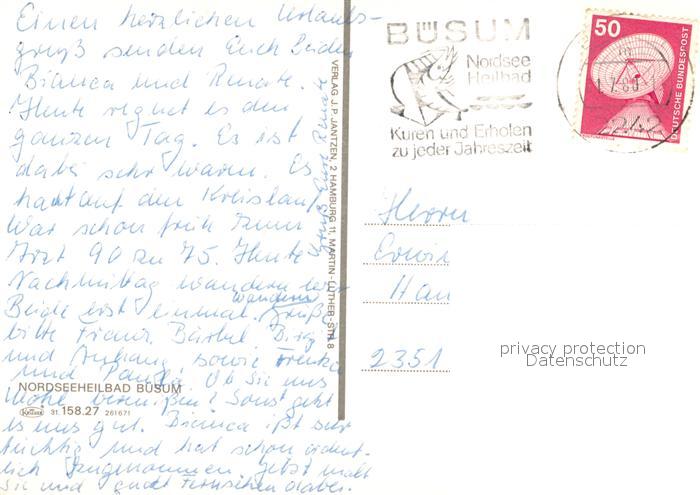 Einen herzlichen Urlaubs-
gruß senden Euch Beiden
Bianca und Renate.
Heute regnet es den
ganzen Tag. Es ist
dabei sehr warm. Es
haut auf den Kreislauf
War schon früh zum
Arzt 90 zu 75. Heute
Nachmittag wandern wir
Beide erst einmal. Grüße
bitte Franz, Bärbel,
und Anhang sowie
und
Ob Sie uns
wohl vermißen? Sonst geht
es uns gut. Bianca ißt sehr
tüchtig und hat schon ordent-
lich zugenommen. Jetzt malt
Sie und guckt Fernsehen dabei.
NORDSEEHEILBAD BÜSUM
Krüger 31.158.27 261671
VERLAG J. P. JANTZEN, 2 HAMBURG 11, MARTIN-LUTHER-STR. 8
BÜSUM
Nordsee
Heilbad
Kuren und Erholen
zu jeder Jahreszeit
50
DEUTSCHE BUNDESPOST
2242
Herrn
Erwin
Han
2351
privacy protection
Datenschutz